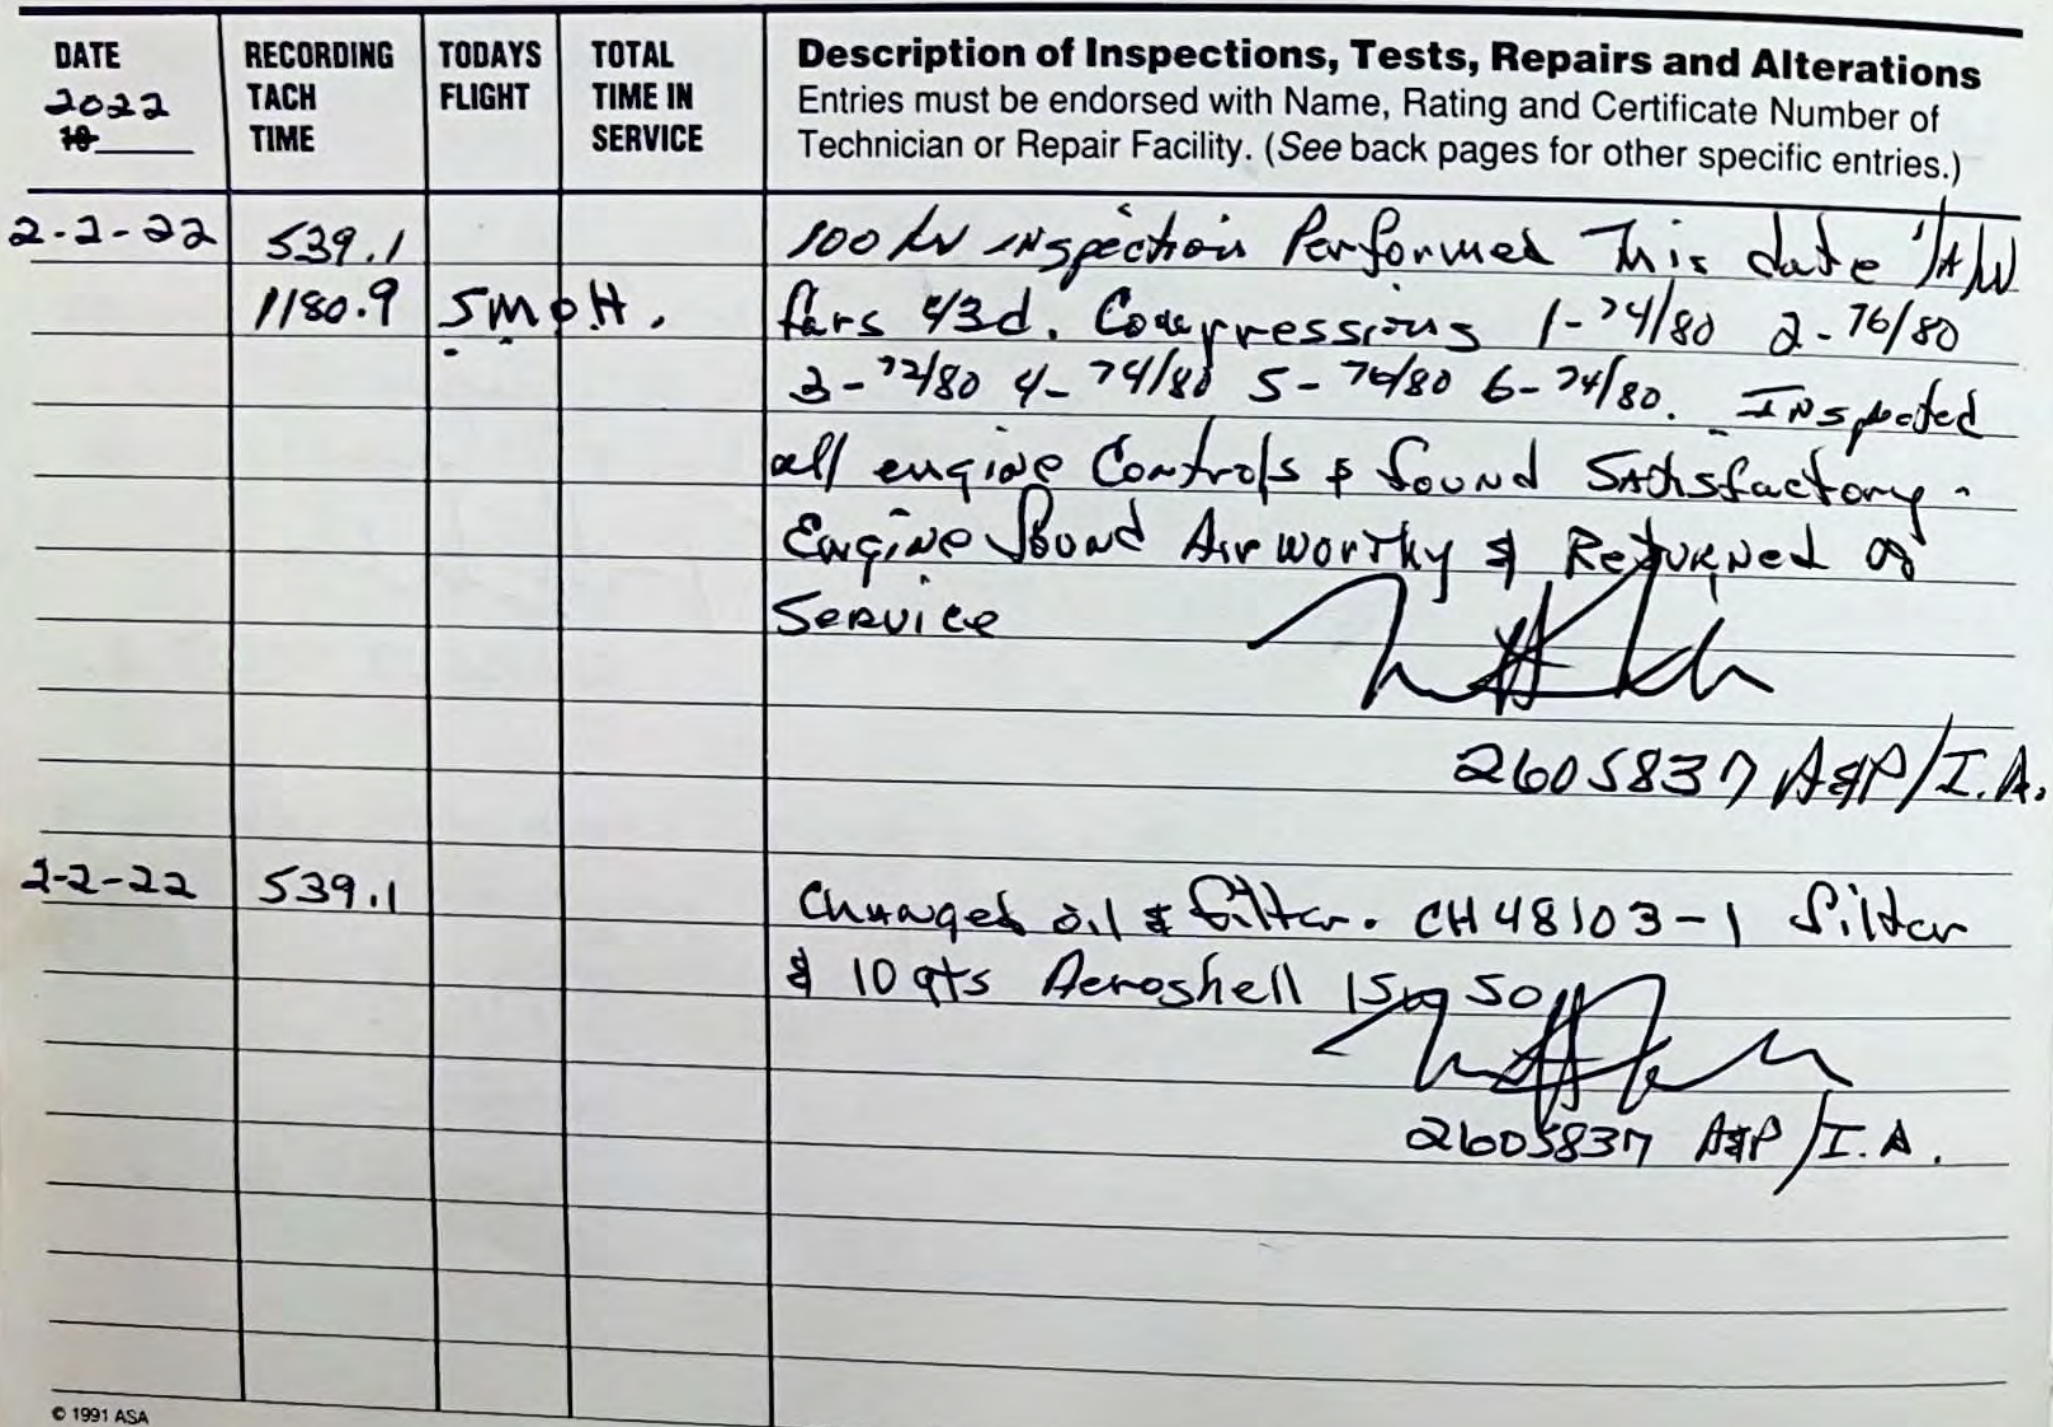 DATE RECORDING TODAYS TOTAL Description of Inspections, Tests, Repairs and Alterations
2022 TACH FLIGHT TIME IN Entries must be endorsed with Name, Rating and Certificate Number of
19 TIME SERVICE Technician or Repair Facility. (See back pages for other specific entries.)
2-2-22 539.1 100 hr inspection Performed This date I/A/W
1180.9 SMOH. fars 43d. Compressions 1-74/80 2-76/80
3-72/80 4-74/80 5-76/80 6-74/80. Inspected
all engine Controls & found Satisfactory.
Engine found Airworthy & Returned to
Service
2605837 A&P/I.A.
2-2-22 539.1 Changed oil & filter. CH48103-1 filter
& 10 qts Aeroshell 15w50
2605837 A&P/I.A.
© 1991 ASA